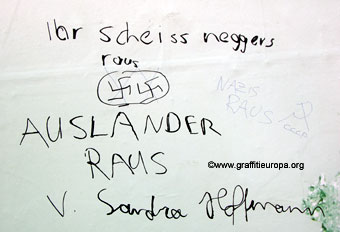 Ihr scheiss neggers
raus
NAZIS
RAUS
AUSLANDER
RAUS
©www.graffitieuropa.org
V. Sandra Hoffmann